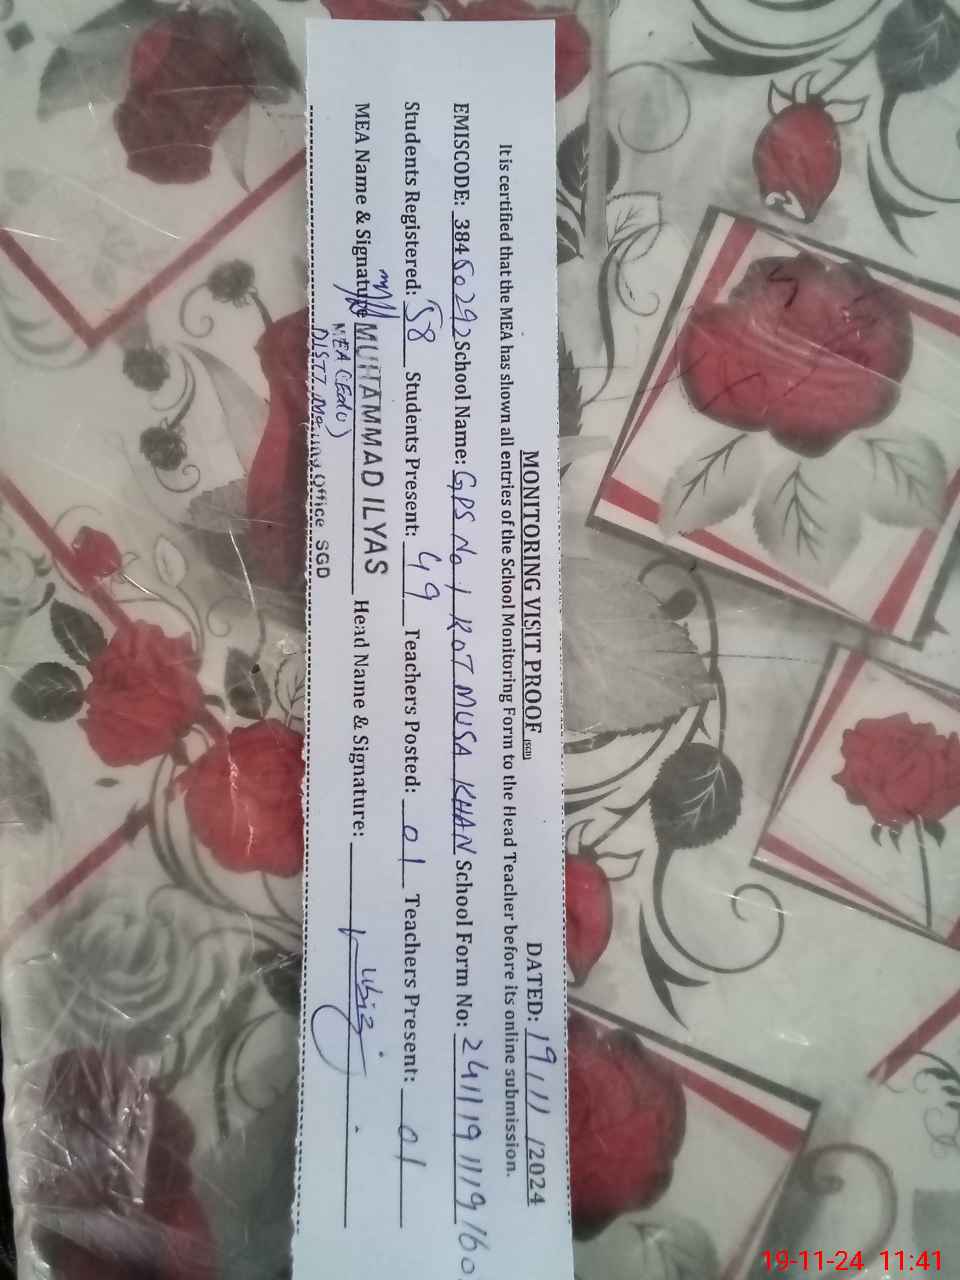 MONITORING VISIT PROOF (SGD) DATED: 19/11/2024
It is certified that the MEA has shown all entries of the School Monitoring Form to the Head Teacher before its online submission.
EMISCODE: 38450292 School Name: GPS No 1 KOT MUSA KHAN School Form No: 2411191119160
Students Registered: 58 Students Present: 49 Teachers Posted: 01 Teachers Present: 01
MEA Name & Signature MUHAMMAD ILYAS Head Name & Signature:
MEA (Edu)
DISTT. Office SGD
19-11-24 11:41